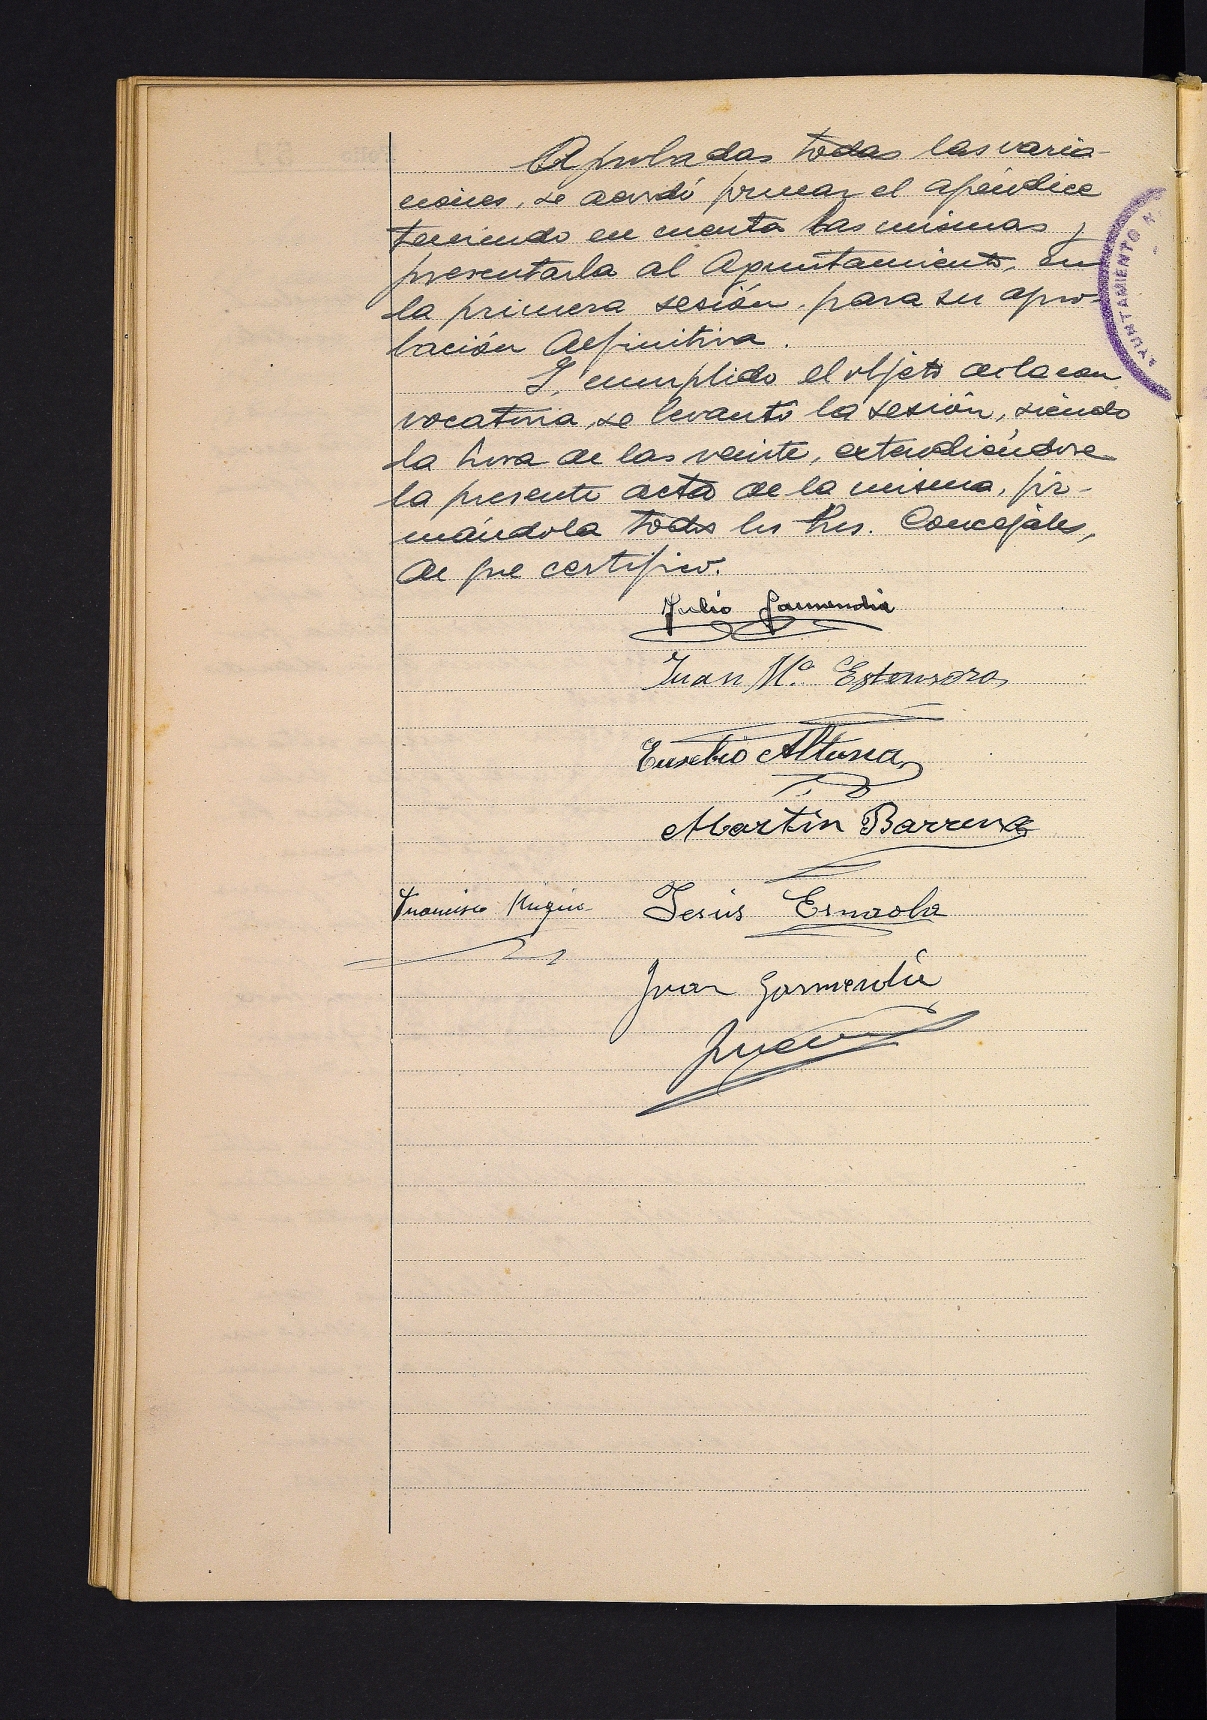 Aprobadas todas las varia-
ciones, se acordó formar el apéndice
teniendo en cuenta las mismas y
presentarla al Ayuntamiento, en
la primera sesión para su apro-
bación definitiva.
Y, cumplido el objeto de la con
vocatoria, se levantó la sesión, siendo
la hora de las veinte, extendiéndose
la presente acta de la misma, fir-
mándola todos los Sres. Concejales,
de que certifico.
Julio Garmendia
Juan Mª. Estensoro
Eusebio Altuna
Martin Barrena
Francisco
Jesús Esnaola
Juan Garmendia
AYUNTAMIENTO